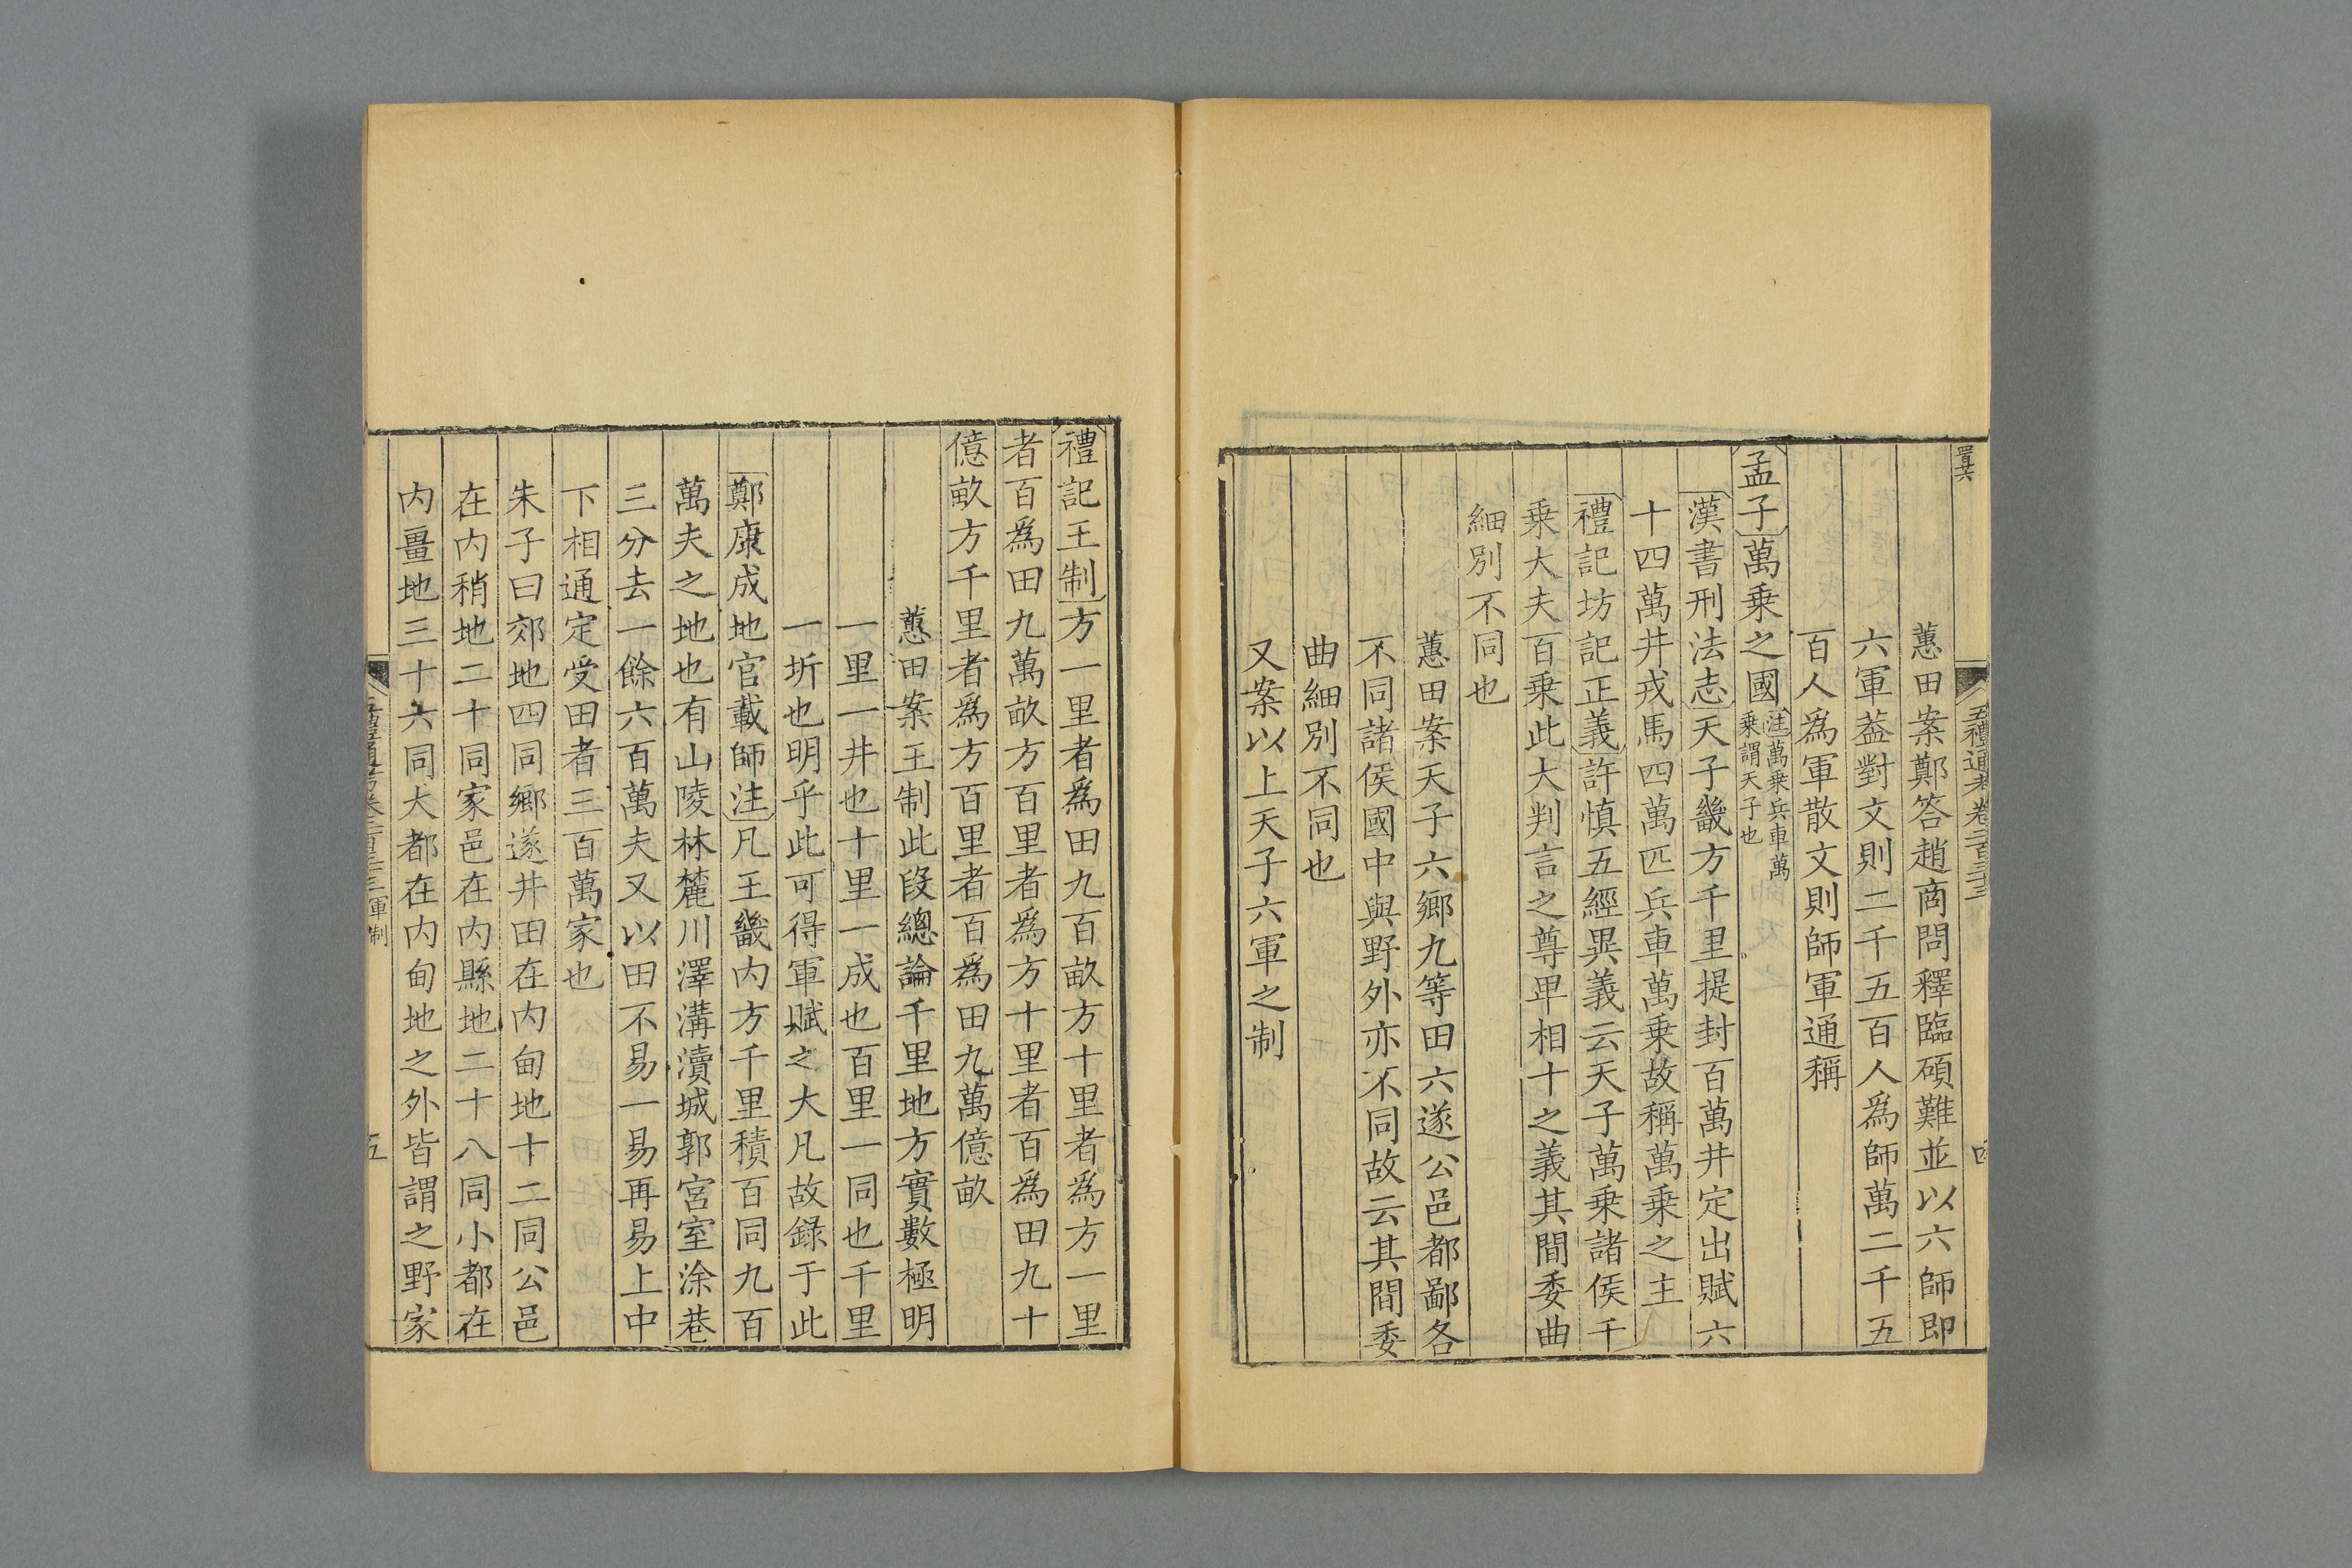 五禮通考卷二百三十三
四
蕙田案鄭答趙商問釋臨碩難並以六師即
六軍葢對文則二千五百人爲師萬二千五
百人爲軍散文則師軍通稱
孟子萬乘之國注萬乘兵車萬
乘謂天子也
漢書刑法志天子畿方千里提封百萬井定出賦六
十四萬井戎馬四萬匹兵車萬乘故稱萬乘之主
禮記坊記正義許慎五經異義云天子萬乘諸侯千
乘大夫百乘此大判言之尊卑相十之義其間委曲
細別不同也
蕙田案天子六鄉九等田六遂公邑都鄙各
不同諸侯國中與野外亦不同故云其間委
曲細別不同也
又案以上天子六軍之制
禮記王制方一里者爲田九百畝方十里者爲方一里
者百爲田九萬畝方百里者爲方十里者百爲田九十
億畝方千里者爲方百里者百爲田九萬億畝
蕙田案王制此段總論千里地方實數極明
一里一井也十里一成也百里一同也千里
一圻也明乎此可得軍賦之大凡故録于此
鄭康成地官載師注凡王畿内方千里積百同九百
萬夫之地也有山陵林麓川澤溝瀆城郭宮室涂巷
三分去一餘六百萬夫又以田不易一易再易上中
下相通定受田者三百萬家也
朱子曰郊地四同鄉遂井田在内甸地十二同公邑
在内稍地二十同家邑在内縣地二十八同小都在
内畺地三十六同大都在内甸地之外皆謂之野家
五禮通考卷二百三十三軍制
五